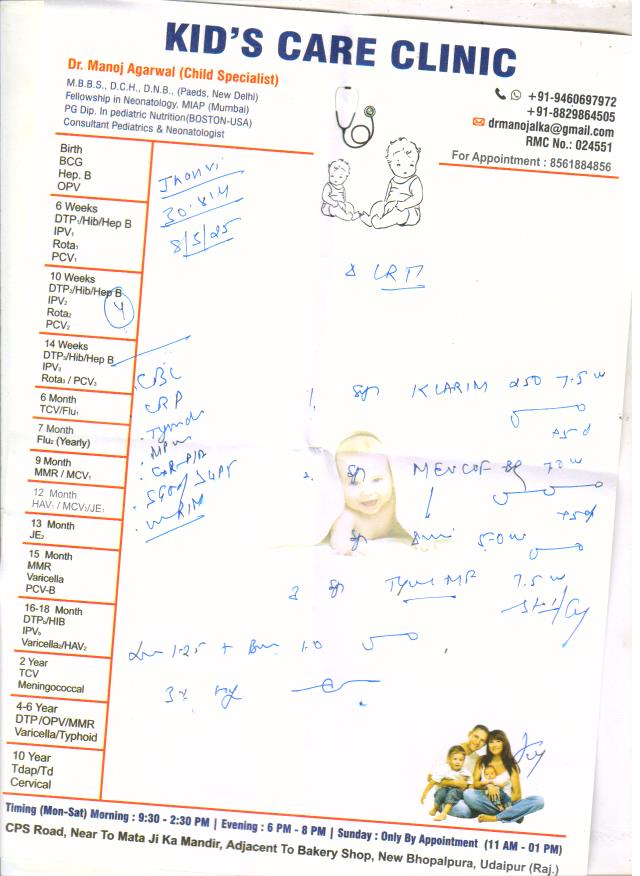 KID'S CARE CLINIC
Dr. Manoj Agarwal (Child Specialist)
M.B.B.S., D.C.H., D.N.B., (Paeds, New Delhi)
Fellowship in Neonatology, MIAP (Mumbai)
PG Dip. In pediatric Nutrition(BOSTON-USA)
Consultant Pediatrics & Neonatologist
+91-9460697972
+91-8829864505
drmanojalka@gmail.com
RMC No.: 024551
For Appointment : 8561884856
Birth
BCG
Hep. B
OPV
6 Weeks
DTP₁/Hib/Hep B
IPV₁
Rota₁
PCV₁
10 Weeks
DTP₂/Hib/Hep B
IPV₂
Rota₂
PCV₂
14 Weeks
DTP₃/Hib/Hep B
IPV₃
Rota₃ / PCV₃
6 Month
TCV/Flu₁
7 Month
Flu₂ (Yearly)
9 Month
MMR / MCV₁
12 Month
HAV₁ / MCV₂/JE₁
13 Month
JE₂
15 Month
MMR
Varicella
PCV-B
16-18 Month
DTP₄/HIB
IPV₄
Varicella₂/HAV₂
2 Year
TCV
Meningococcal
4-6 Year
DTP/OPV/MMR
Varicella/Typhoid
10 Year
Tdap/Td
Cervical
8/5/25
LRTI
4
CBC
CRP
1. Syp KLARIM 250 7.5
x5d
Syp
x5d
Syp
Syp 7.5
1.25 + 1.0
Timing (Mon-Sat) Morning : 9:30 - 2:30 PM | Evening : 6 PM - 8 PM | Sunday : Only By Appointment (11 AM - 01 PM)
CPS Road, Near To Mata Ji Ka Mandir, Adjacent To Bakery Shop, New Bhopalpura, Udaipur (Raj.)